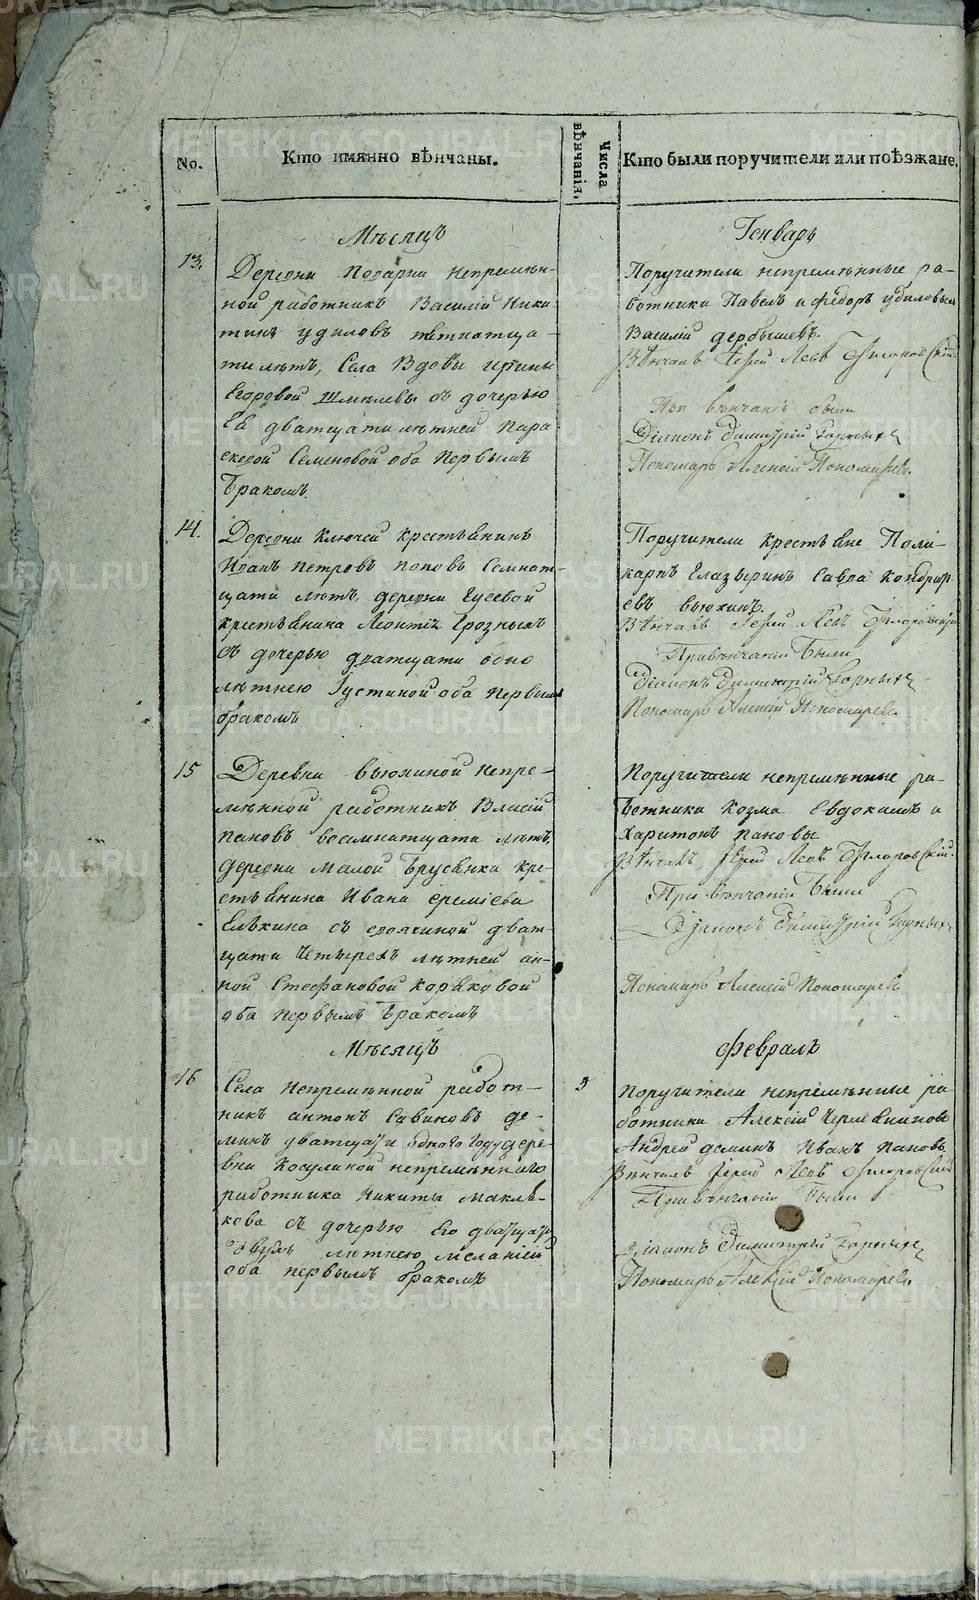 No.
Кто имянно вѣнчаны.
Числа вѣнчанія.
Кто были поручители или поѣзжане.
Мѣсяцъ
Генварь
13.
Деревни Поварни непремѣн-
ной работникъ Василій Ники
тинъ удиловъ
ти лѣтъ, Села Вдовы ирины
Егоровой съ дочерью
Ея дватцати лѣтней пара
скевой Семеновой оба первымъ
бракомъ.
Поручители непремѣнные ра-
ботники Павелъ и Федоръ удиловы
Василій дербышевъ.
Вѣнчалъ Іерей Левъ Флоровскій
При вѣнчаніи были
Діаконъ Димитрій
Пономарь Алексій Пономаревъ.
14.
Деревни Ключей крестьянинъ
Иванъ петровъ поповъ Семнат-
цати лѣтъ, деревни Гусевой
крестьянина Леонтія Грозныхъ
съ дочерью дватцати одно
лѣтнею Густиной оба первымъ
бракомъ
Поручители крестьяне Поли-
карпъ Глазыринъ Савва кондрать
евъ вьюхинъ.
Вѣнчалъ Іерей Левъ Флоровскій
При вѣнчаніи были
Діаконъ Димитрій
Пономарь Алексій Пономаревъ.
15
Деревни Вьюхиной непре-
мѣнной работникъ Власій
пановъ восемнатцати лѣтъ,
деревни малой Брусянки кре-
стьянина Ивана еремѣева
Елькина съ своячиной дват-
цати четырехъ лѣтней ан-
ной Стефановой коряковой
оба первымъ бракомъ
Поручители непремѣнные ра-
ботники козма Евдокимъ и
Харитонъ пановы
Вѣнчалъ Іерей Левъ Флоровскій
При вѣнчаніи были
Діаконъ Димитрій
Пономарь Алексій Пономаревъ
Мѣсяцъ
Февраль
16
Села непремѣнной работ-
никъ антонъ Савиновъ де-
минъ дватцати одного году дере-
вни Косулиной непремѣннаго
работника Никиты
кова съ дочерью Его дватцати
лѣтнею меланіей
оба первымъ бракомъ
3
Поручители непремѣнные ра-
ботники Алексій
Андрей деминъ Иванъ пановъ.
Вѣнчалъ Іерей Левъ Флоровскій
При вѣнчаніи были
Діаконъ Димитрій
Пономарь Алексій Пономаревъ.
METRIKI.GASO-URAL.RU